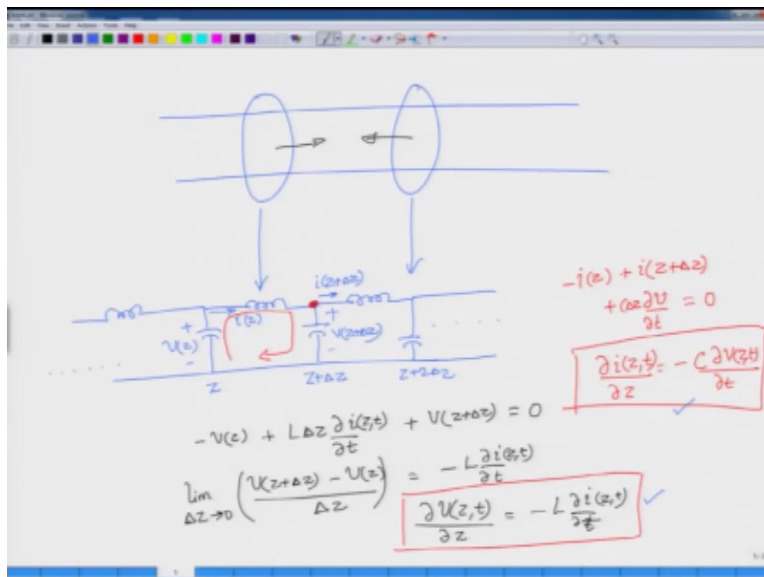 i(z+Δz)
i(z)
+
V(z)
-
+
V(z+Δz)
-
z
z+Δz
z+2Δz
-i(z) + i(z+Δz)
+ CΔz ∂V/∂t = 0
∂i(z,t)/∂z = -C ∂V(z,t)/∂t
-V(z) + LΔz ∂i(z,t)/∂t + V(z+Δz) = 0
lim Δz→0 ( (V(z+Δz) - V(z))/Δz ) = -L ∂i(z,t)/∂t
∂V(z,t)/∂z = -L ∂i(z,t)/∂t